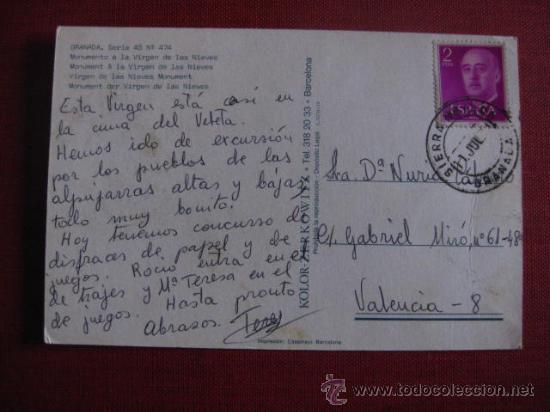 GRANADA. Serie 45 Nº 474
Monumento a la Virgen de las Nieves
Monument à la Virgen de las Nieves
Virgen de las Nieves Monument
Monument der Virgen de las Nieves
Esta Virgen está casi en
la cima del Veleta.
Hemos ido de excursión
por los pueblos de las
alpujarras altas y bajas,
todo muy bonito.
Hoy tenemos concurso de
disfraces de papel y de
juegos. Rocío entra en el
de trajes y Mª Teresa en el
de juegos. Hasta pronto
Abrazos. Tere
KOLOR-ZERKOWITZ • Tel. 318 20 33 • Barcelona
Prohibida la reproducción - Depósito Legal
2
PTAS
ESPAÑA
SIERRA
JUL
GRANADA
Sra. Dª Nuria
C/. Gabriel Miró, nº 61-48ª
Valencia - 8
Impresión: Casamajó Barcelona
todocoleccion.net